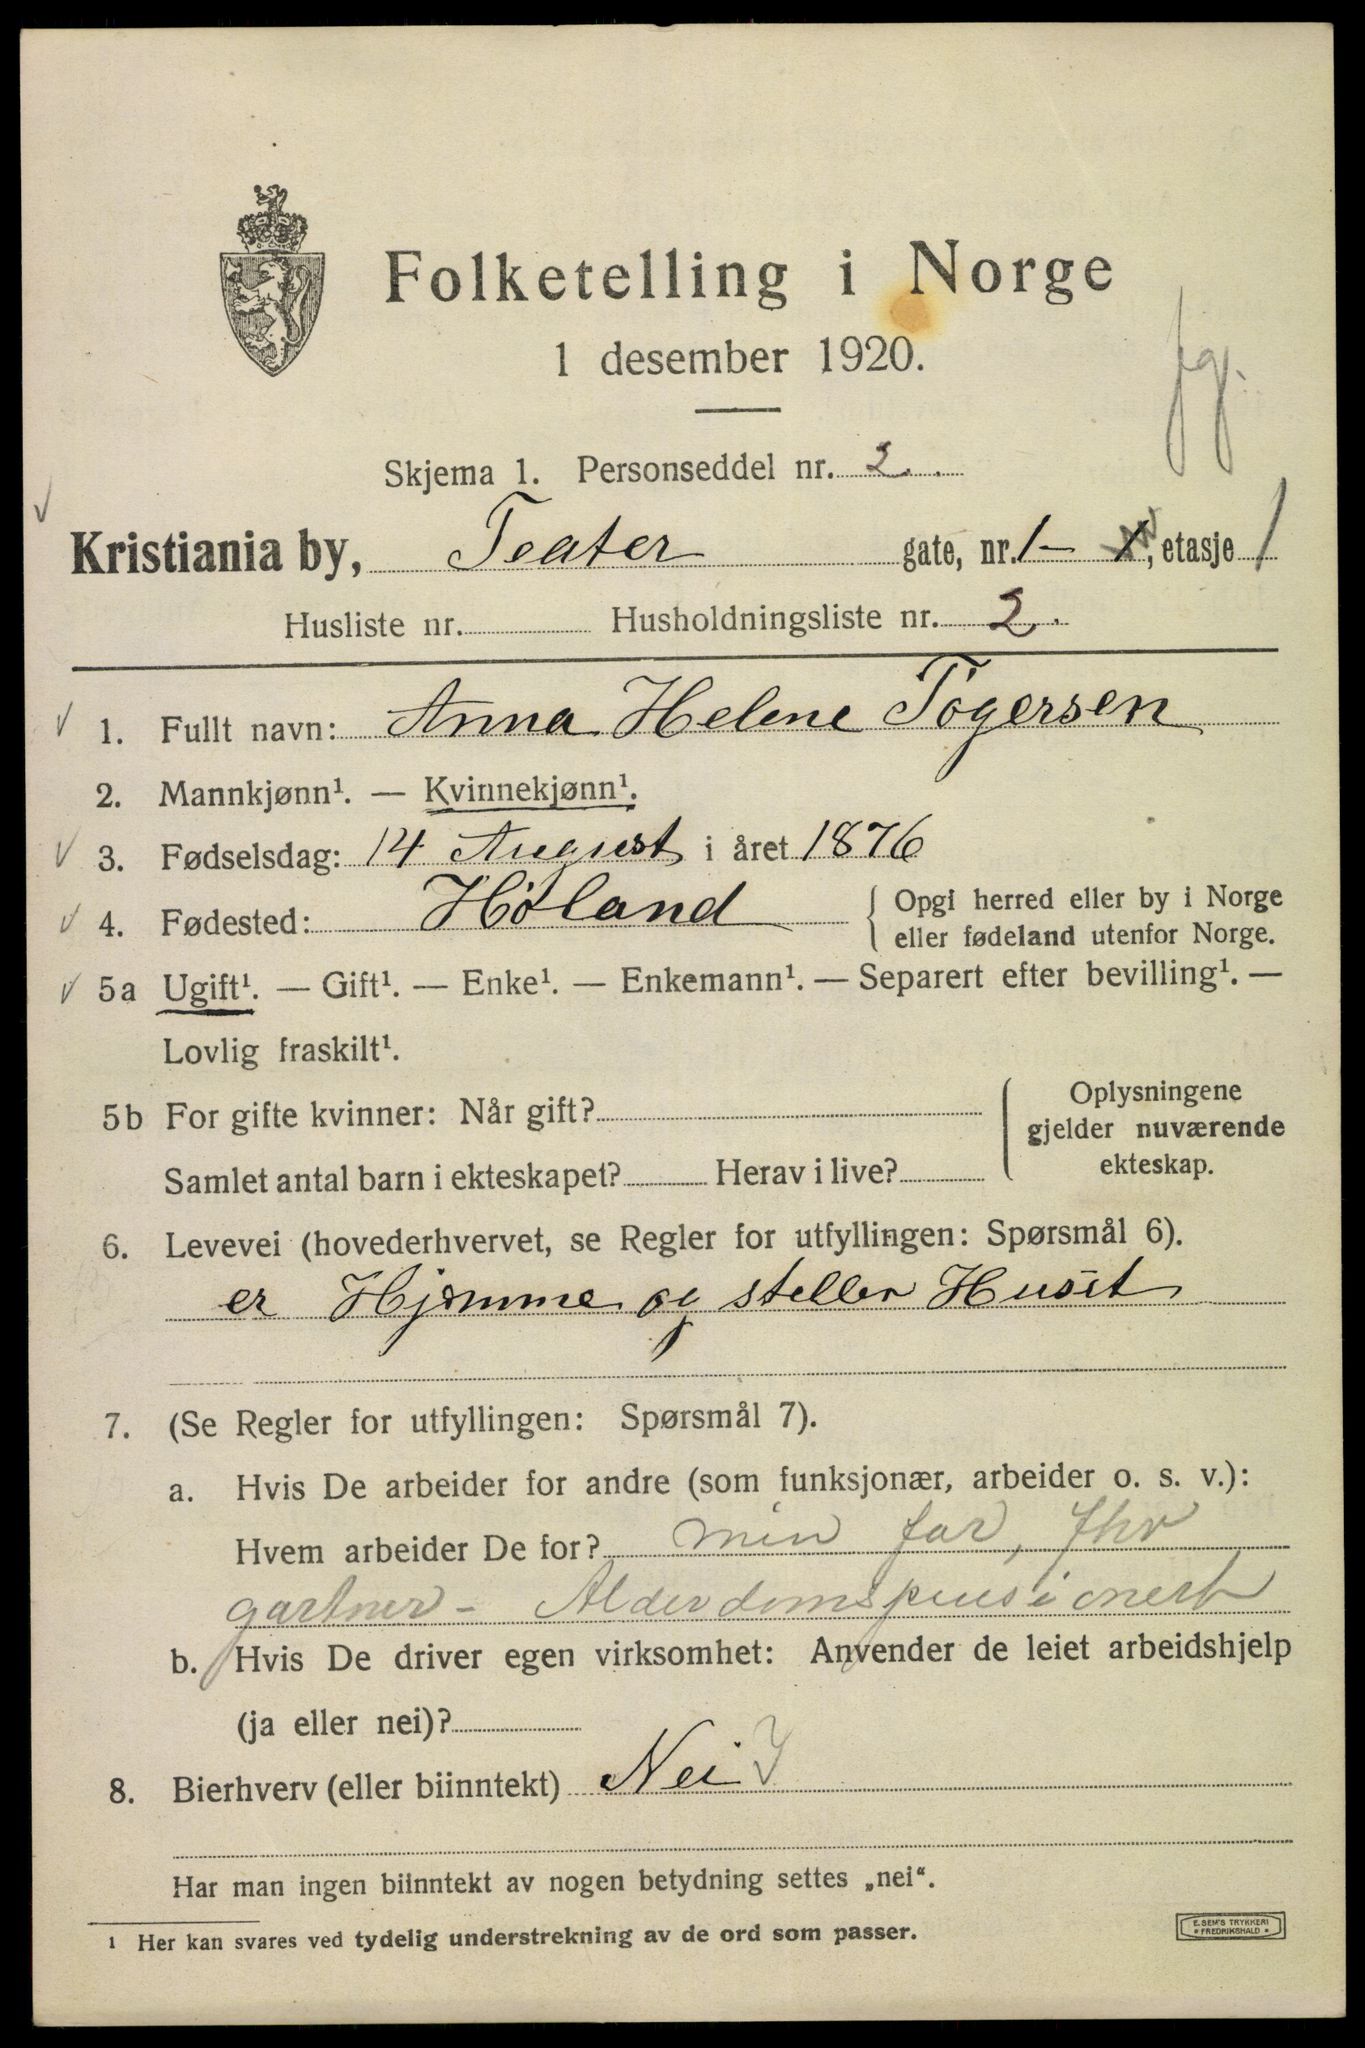 Folketelling i Norge
1 desember 1920.
fg.
Skjema 1. Personseddel nr. 2.
Kristiania by, Teater gate, nr. 1- 1, etasje 1
Husliste nr. Husholdningsliste nr. 2.
1. Fullt navn: Anna Helene Togersen
2. Mannkjønn¹. — Kvinnekjønn¹.
3. Fødselsdag: 14 August i året 1876
4. Fødested: Høland { Opgi herred eller by i Norge
eller fødeland utenfor Norge.
5a Ugift¹. — Gift¹. — Enke¹. — Enkemann¹. — Separert efter bevilling¹. —
Lovlig fraskilt¹.
5b For gifte kvinner: Når gift? { Oplysningene
gjelder nuværende
Samlet antal barn i ekteskapet? Herav i live? ekteskap.
6. Levevei (hovederhvervet, se Regler for utfyllingen: Spørsmål 6).
er Hjemme og steller Huset
7. (Se Regler for utfyllingen: Spørsmål 7).
a. Hvis De arbeider for andre (som funksjonær, arbeider o. s. v.):
Hvem arbeider De for? min far, fhv
gartner - Alderdomspensionert
b. Hvis De driver egen virksomhet: Anvender de leiet arbeidshjelp
(ja eller nei)?
8. Bierhverv (eller biinntekt) Nei
Har man ingen biinntekt av nogen betydning settes „nei“.
1 Her kan svares ved tydelig understrekning av de ord som passer.
E. SEM'S TRYKKERI
* FREDRIKSHALD *